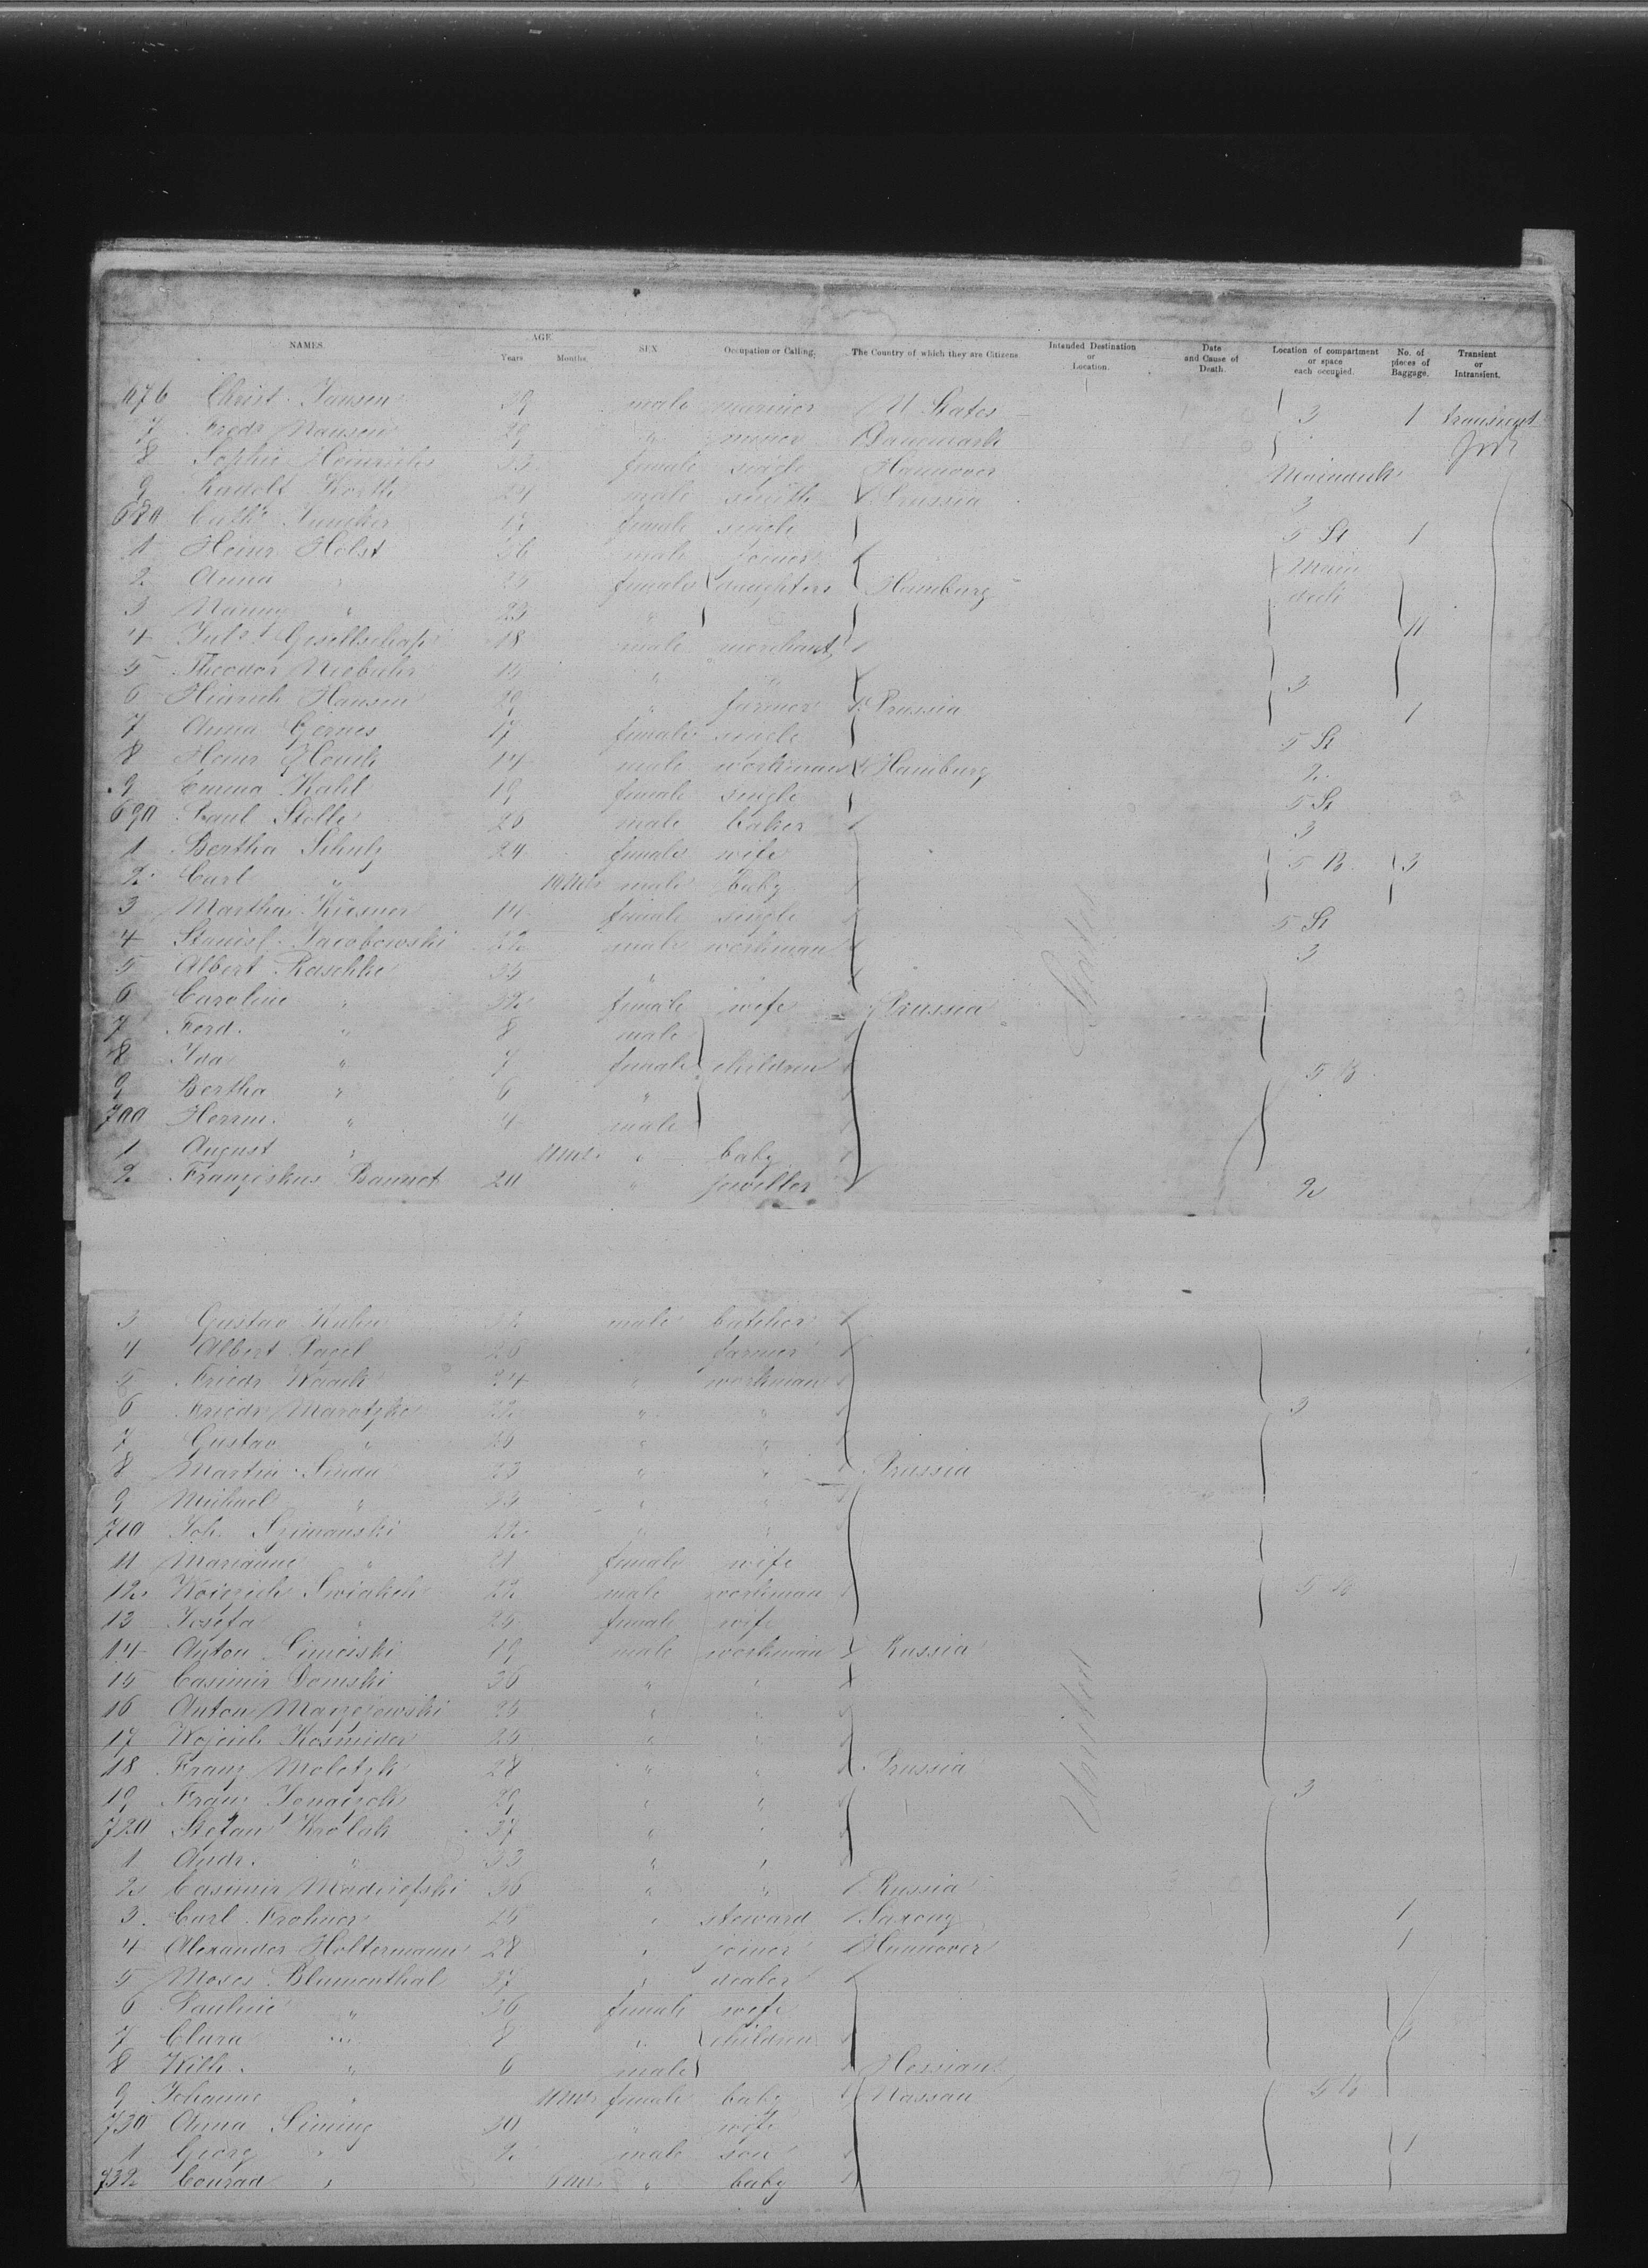 NAMES. AGE Years Months. SEX Occupation or Calling. The Country of which they are Citizens Intended Destination or Location. Date and Cause of Death. Location of compartment or space each occupied. No. of pieces of Baggage. Transient or Intransient.
676 Christ. Jansen 39 male mariner U States 3 1 transient
7 Fredr Hansen 29 " Dannemark
8 Sophie Heinrichs 33 female single Hannover Maindeck
9 Rudolf Korth 24 male smith Prussia 3
680 Cath. Juncker female single 5 St 1
1 Heinr Holst 56 male joiner Main
2 Anna " 25 female daughters Hamburg deck
3 Nanny " 23 "
4 Jul. Gesellschap 18 male merchant 11
5 Theodor Niebuhr 15 " "
6 Hinrich Hansen 29 " farmer Prussia 3 1
7 Anna Gernes 17 female single 5 St
8 Heinr Hauck 14 male workman Hamburg 2
9 Emma Kahl 19 female single 5 St
690 Paul Stolle 26 male baker 3
1 Bertha Schulz 24 female wife 5 B. 3
2 Carl " 10 ms male baby
3 Martha Kiesner 14 female single 5 St
4 Stanisl. Jacobowski 22 male workman 3
5 Albert Raschke 35 " "
6 Caroline " 32 female wife Prussia
7 Ferd. " 8 male
8 Ida " 7 female children 5 B.
9 Bertha " 6 "
700 Herrm. " 4 male
1 August " 11 ms " baby
2 Franziskus Bannot 20 " jeweller 2
3 Gustav Kuhn 32 male butcher
4 Albert Pagel 26 " farmer
5 Friedr 24 " workman
6 Friedr Marotzke 22 " " 3
7 Gustav " 25 " "
8 Martin 23 " " Prussia
9 Michael " 25 " "
710 Joh. Szimanski 22 " "
11 Marianne " 21 female wife
12 22 male workman 5 B
13 Josefa " 25 female wife
14 Anton 19 male workman Russia
15 Casimir Domski 36 " "
16 Anton 25 " "
17 Wojcich Kosmider 25 " "
18 Franz Molotzk 28 " " Prussia
19 Franz 29 " " 3
720 Stefan Krolak 37 " "
1 Andr. " 33 " "
2 Casimir 36 " " Russia
3 Carl Frohner 25 " steward Saxony 1
4 Alexander Holtermann 28 " joiner Hannover 1
5 Moses Blumenthal 37 " dealer
6 Pauline " 36 female wife
7 Clara " 8 " children 6
8 Wilh. " 6 male Hessian
9 Johanne " 11 ms female baby Nassau 5 B
730 Anna Siming 30 " wife
1 Georg " 2 male son 1
732 Conrad " 6 ms " baby
United States